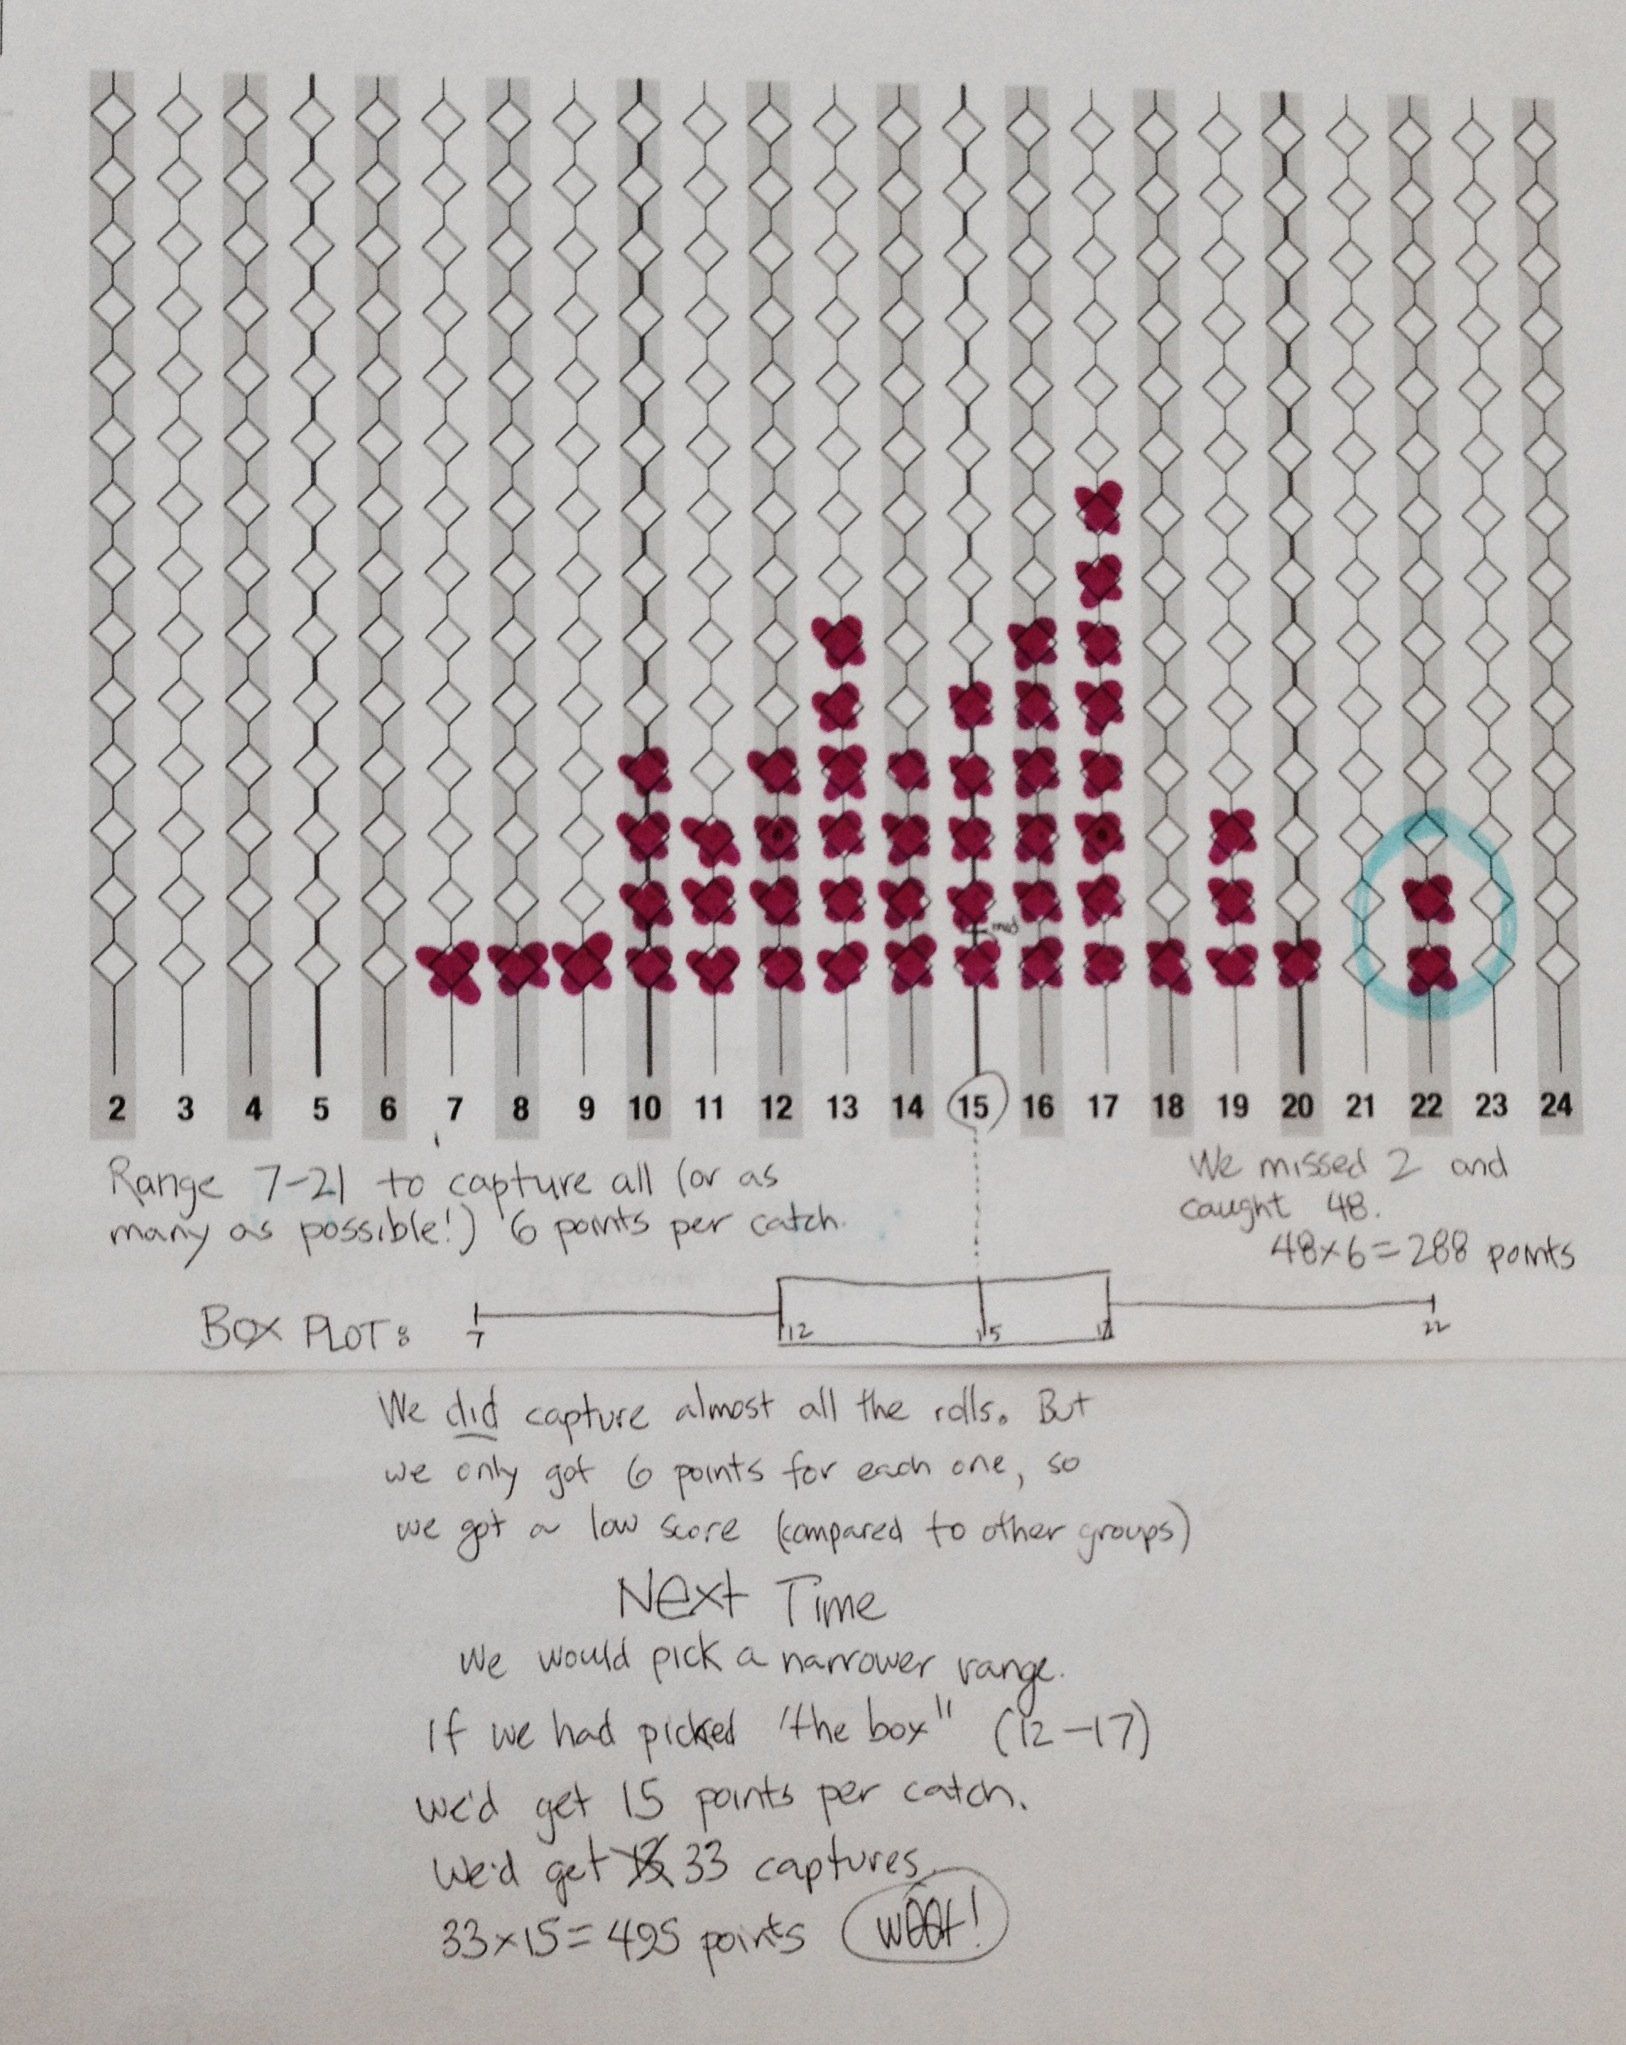 mid
2 3 4 5 6 7 8 9 10 11 12 13 14 15 16 17 18 19 20 21 22 23 24
Range 7-21 to capture all (or as
many as possible!) 6 points per catch.
We missed 2 and
caught 48.
48x6=288 points
BOX PLOT:
7 12 15 17 22
We did capture almost all the rolls. But
we only got 6 points for each one, so
we got a low score (compared to other groups)
Next Time
We would pick a narrower range.
If we had picked "the box" (12-17)
we'd get 15 points per catch.
We'd get 33 captures.
33x15=495 points woot!